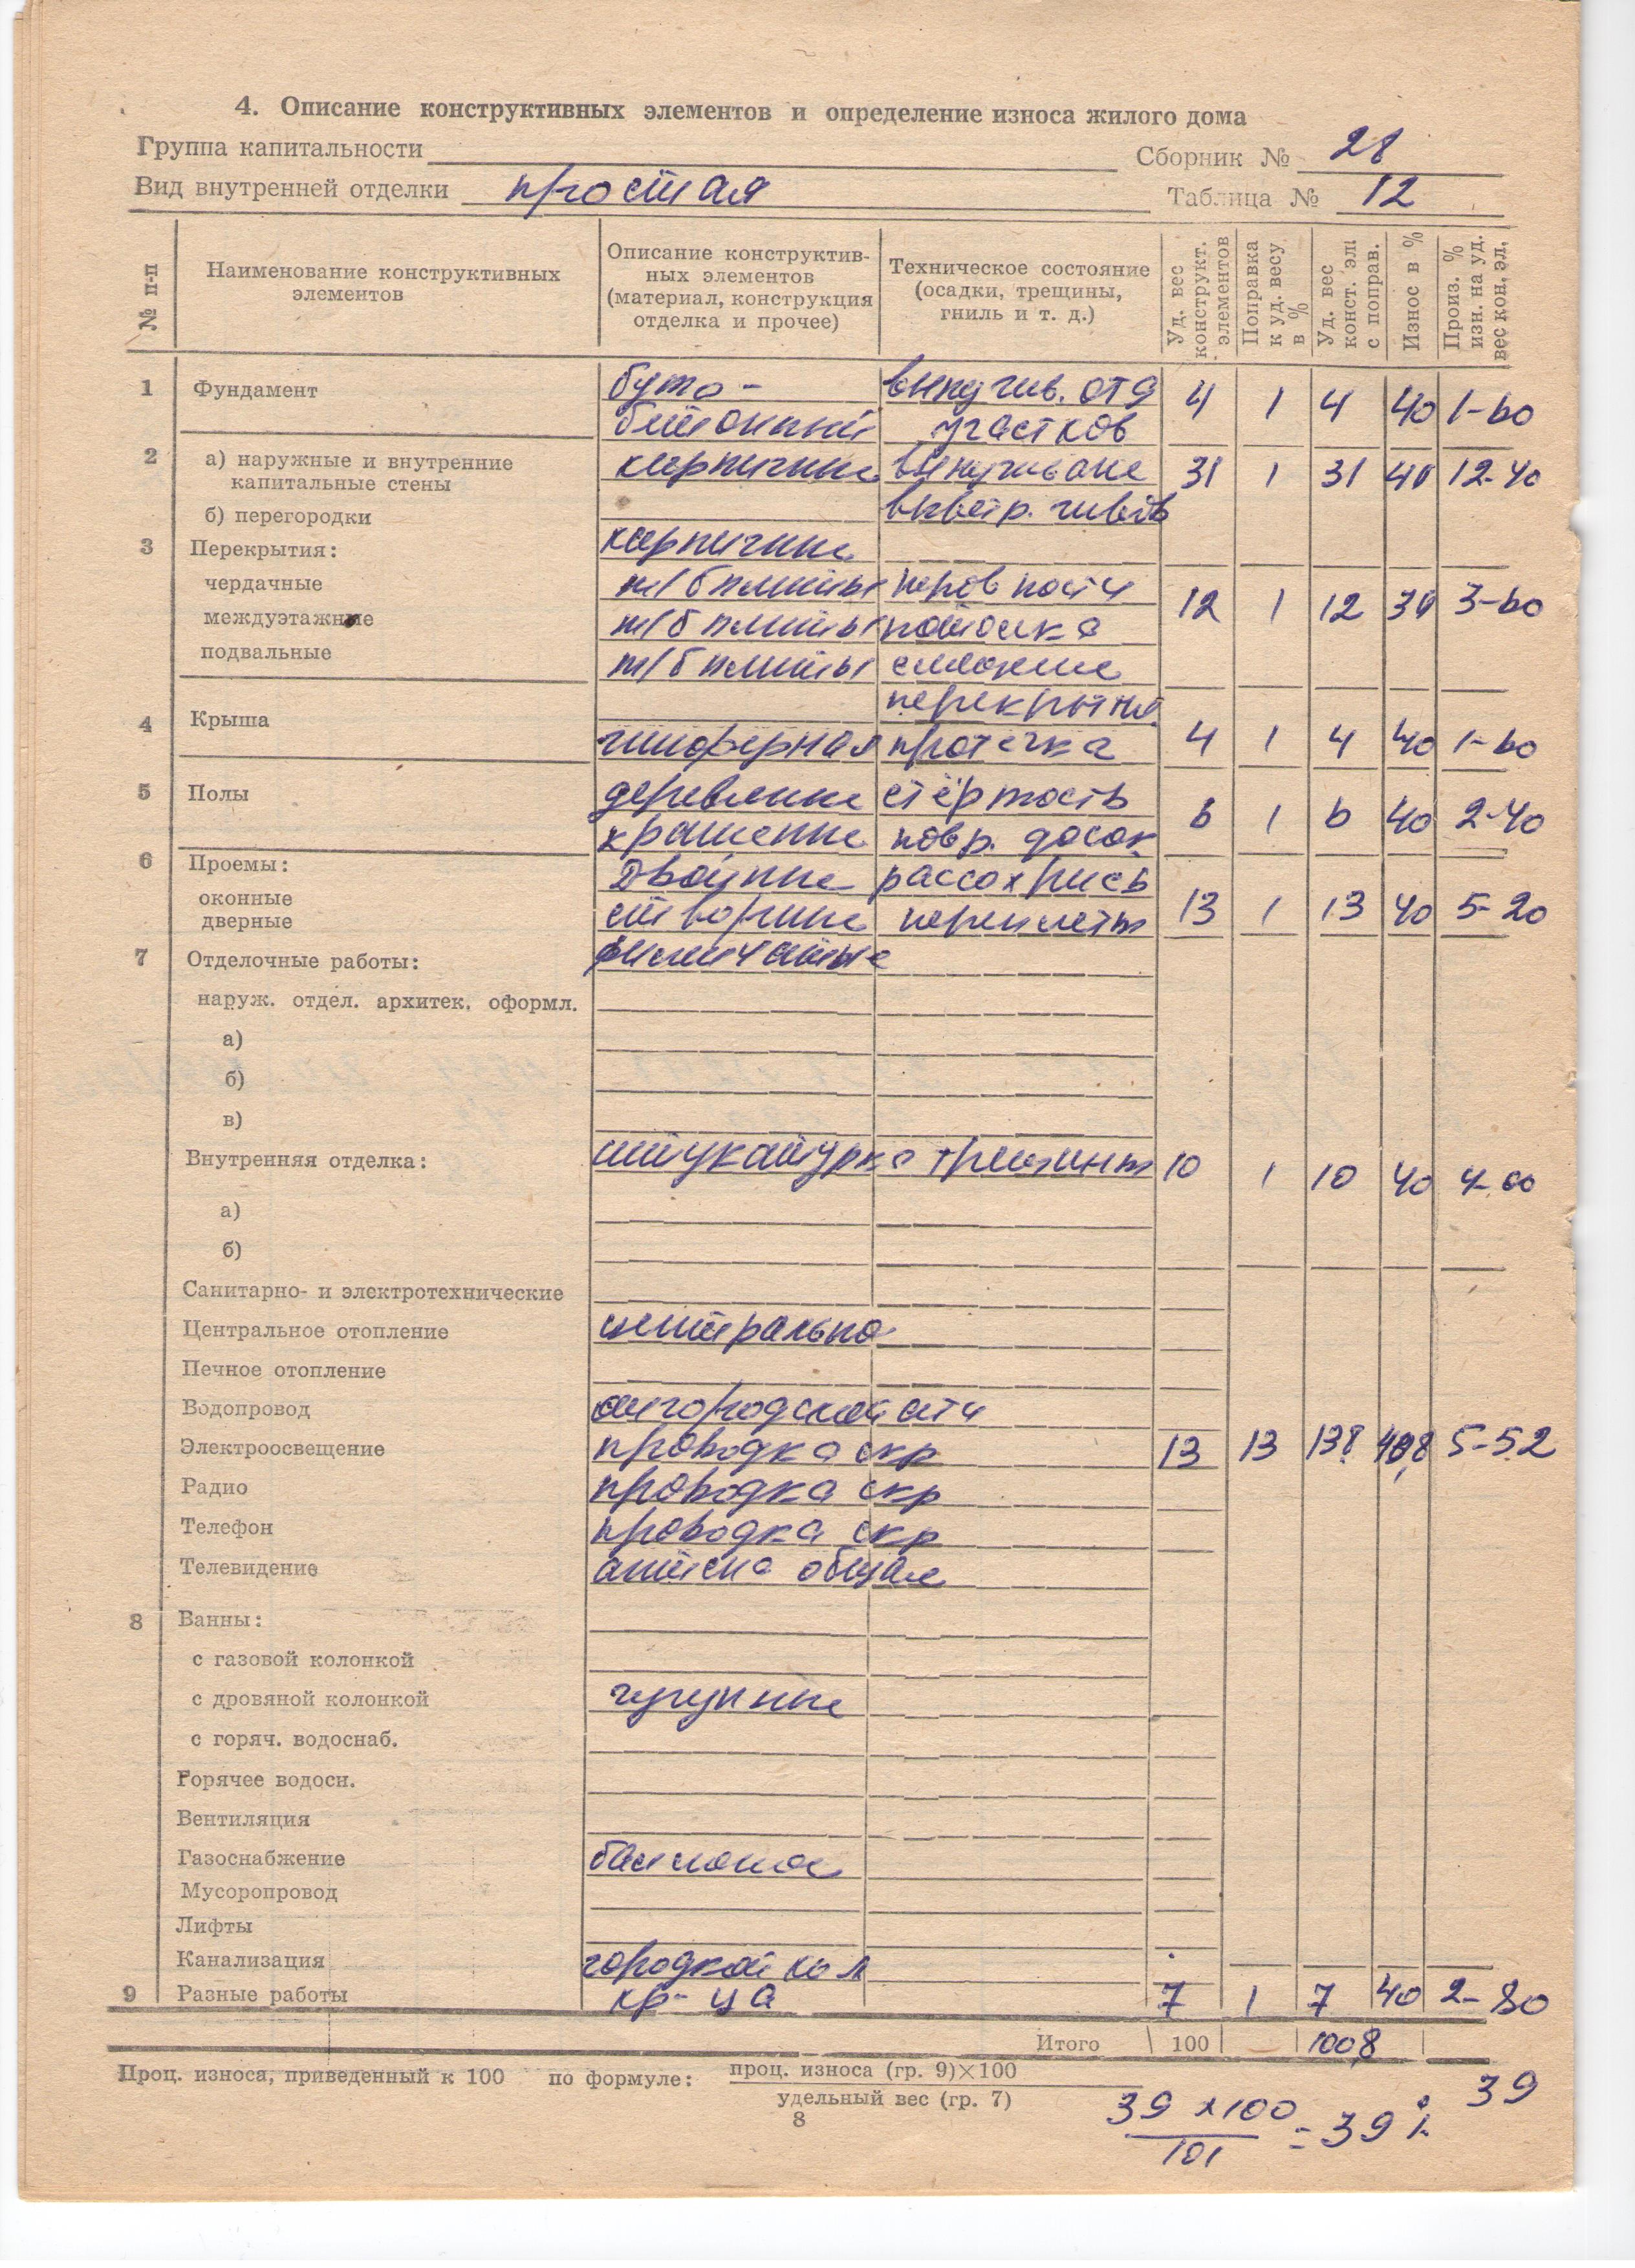 4. Описание конструктивных элементов и определение износа жилого дома
Группа капитальности Сборник № 28
Вид внутренней отделки простая Таблица № 12
№ п-п
Наименование конструктивных элементов
Описание конструктивных элементов (материал, конструкция отделка и прочее)
Техническое состояние (осадки, трещины, гниль и т. д.)
Уд. вес конструкт. элементов
Поправка к уд. весу в %
Уд. вес конст. эл. с поправ.
Износ в %
Произ. % изн. на уд. вес кон. эл.
1 Фундамент буто- выпучив. отд 4 1 4 40 1-60
бетонный участков
2 а) наружные и внутренние кирпичные выпучивание 31 1 31 40 12-40
капитальные стены
б) перегородки
3 Перекрытия: кирпичные
чердачные ж/б плиты неровности 12 1 12 30 3-60
междуэтажные ж/б плиты потолка
подвальные ж/б плиты смежные
перекрытия
4 Крыша шиферная протечка 4 1 4 40 1-60
5 Полы деревянные стёртость 6 1 6 40 2-40
крашенные повр. досок
6 Проемы: двойные рассохлись
оконные створные переплеты 13 1 13 40 5-20
дверные
7 Отделочные работы: филенчатые
наруж. отдел. архитек. оформл.
а)
б)
в)
Внутренняя отделка: штукатурка трещины 10 1 10 40 4-00
а)
б)
Санитарно- и электротехнические
Центральное отопление центрально
Печное отопление
Водопровод от городской сети
Электроосвещение проводка скр 13 13 13,8 5-52
Радио проводка скр
Телефон проводка скр
Телевидение антена общая
8 Ванны:
с газовой колонкой
с дровяной колонкой чугунные
с горяч. водоснаб.
Горячее водосн.
Вентиляция
Газоснабжение
Мусоропровод
Лифты
Канализация
9 Разные работы кр-ца 7 1 7 40 2-80
Итого 100 100,8
Проц. износа, приведенный к 100 по формуле: проц. износа (гр. 9)×100 39
удельный вес (гр. 7)
8
39 х100 = 39 %
101